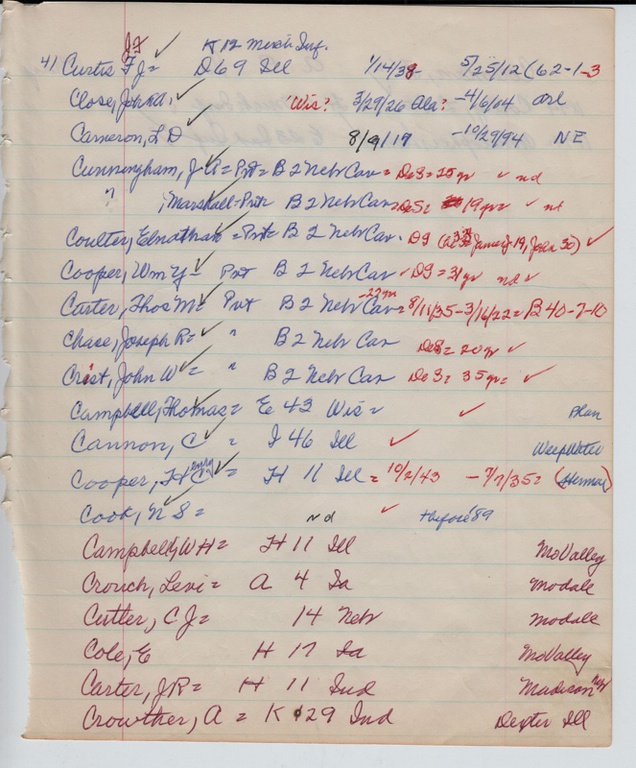 JF K 12 Mich Inf.
41 Curtis F J = D 69 Ill 1/14/38 5/25/12 (62-1-3
Close, John 'Wis? 3/29/26 Ala? -4/6/04
Cameron, L D 8/9/19 -10/29/94 NE
Cunningham, J A = Pvt = B 2 Nebr Cav = De8 = 25 yr ✓ nd
" , Marshall = Pvt = B 2 Nebr Cav = De5 = 19 yr = ✓ nd
Coulter, Elnathan = Pvt = B 2 Nebr Cav. D9 January 19, John 30) ✓
Cooper, Wm Y = Pvt B 2 Nebr Cav ✓ D9 = 31 yr nd ✓
Carter, Thos M = Pvt B 2 Nebr Cav = -27m 8/11/35-3/16/22 = B 40-7-10
Chase, Joseph R = " B 2 Nebr Cav De8 = 20 yr ✓
Crist, John W = " B 2 Nebr Cav De3 = 35 yr = ✓
Campbell, Thomas = E 43 Wis = ✓
Cannon, C = I 46 Ill ✓ Weep Water
Cooper, H C enry = H 11 Ill = 10/2/43 - 7/7/35 = (Herman)
Cook, N S = nd ✓ + before '89
Campbell, W H = H 11 Ill Mo Valley
Crouch, Levi = A 4 Ia Modale
Cutler, C J = 14 Nebr Modale
Cole, E H 17 Ia Mo Valley
Carter, J R = H 11 Ind Madison Nebr
Crowther, A = K 29 Ind Dexter Ill